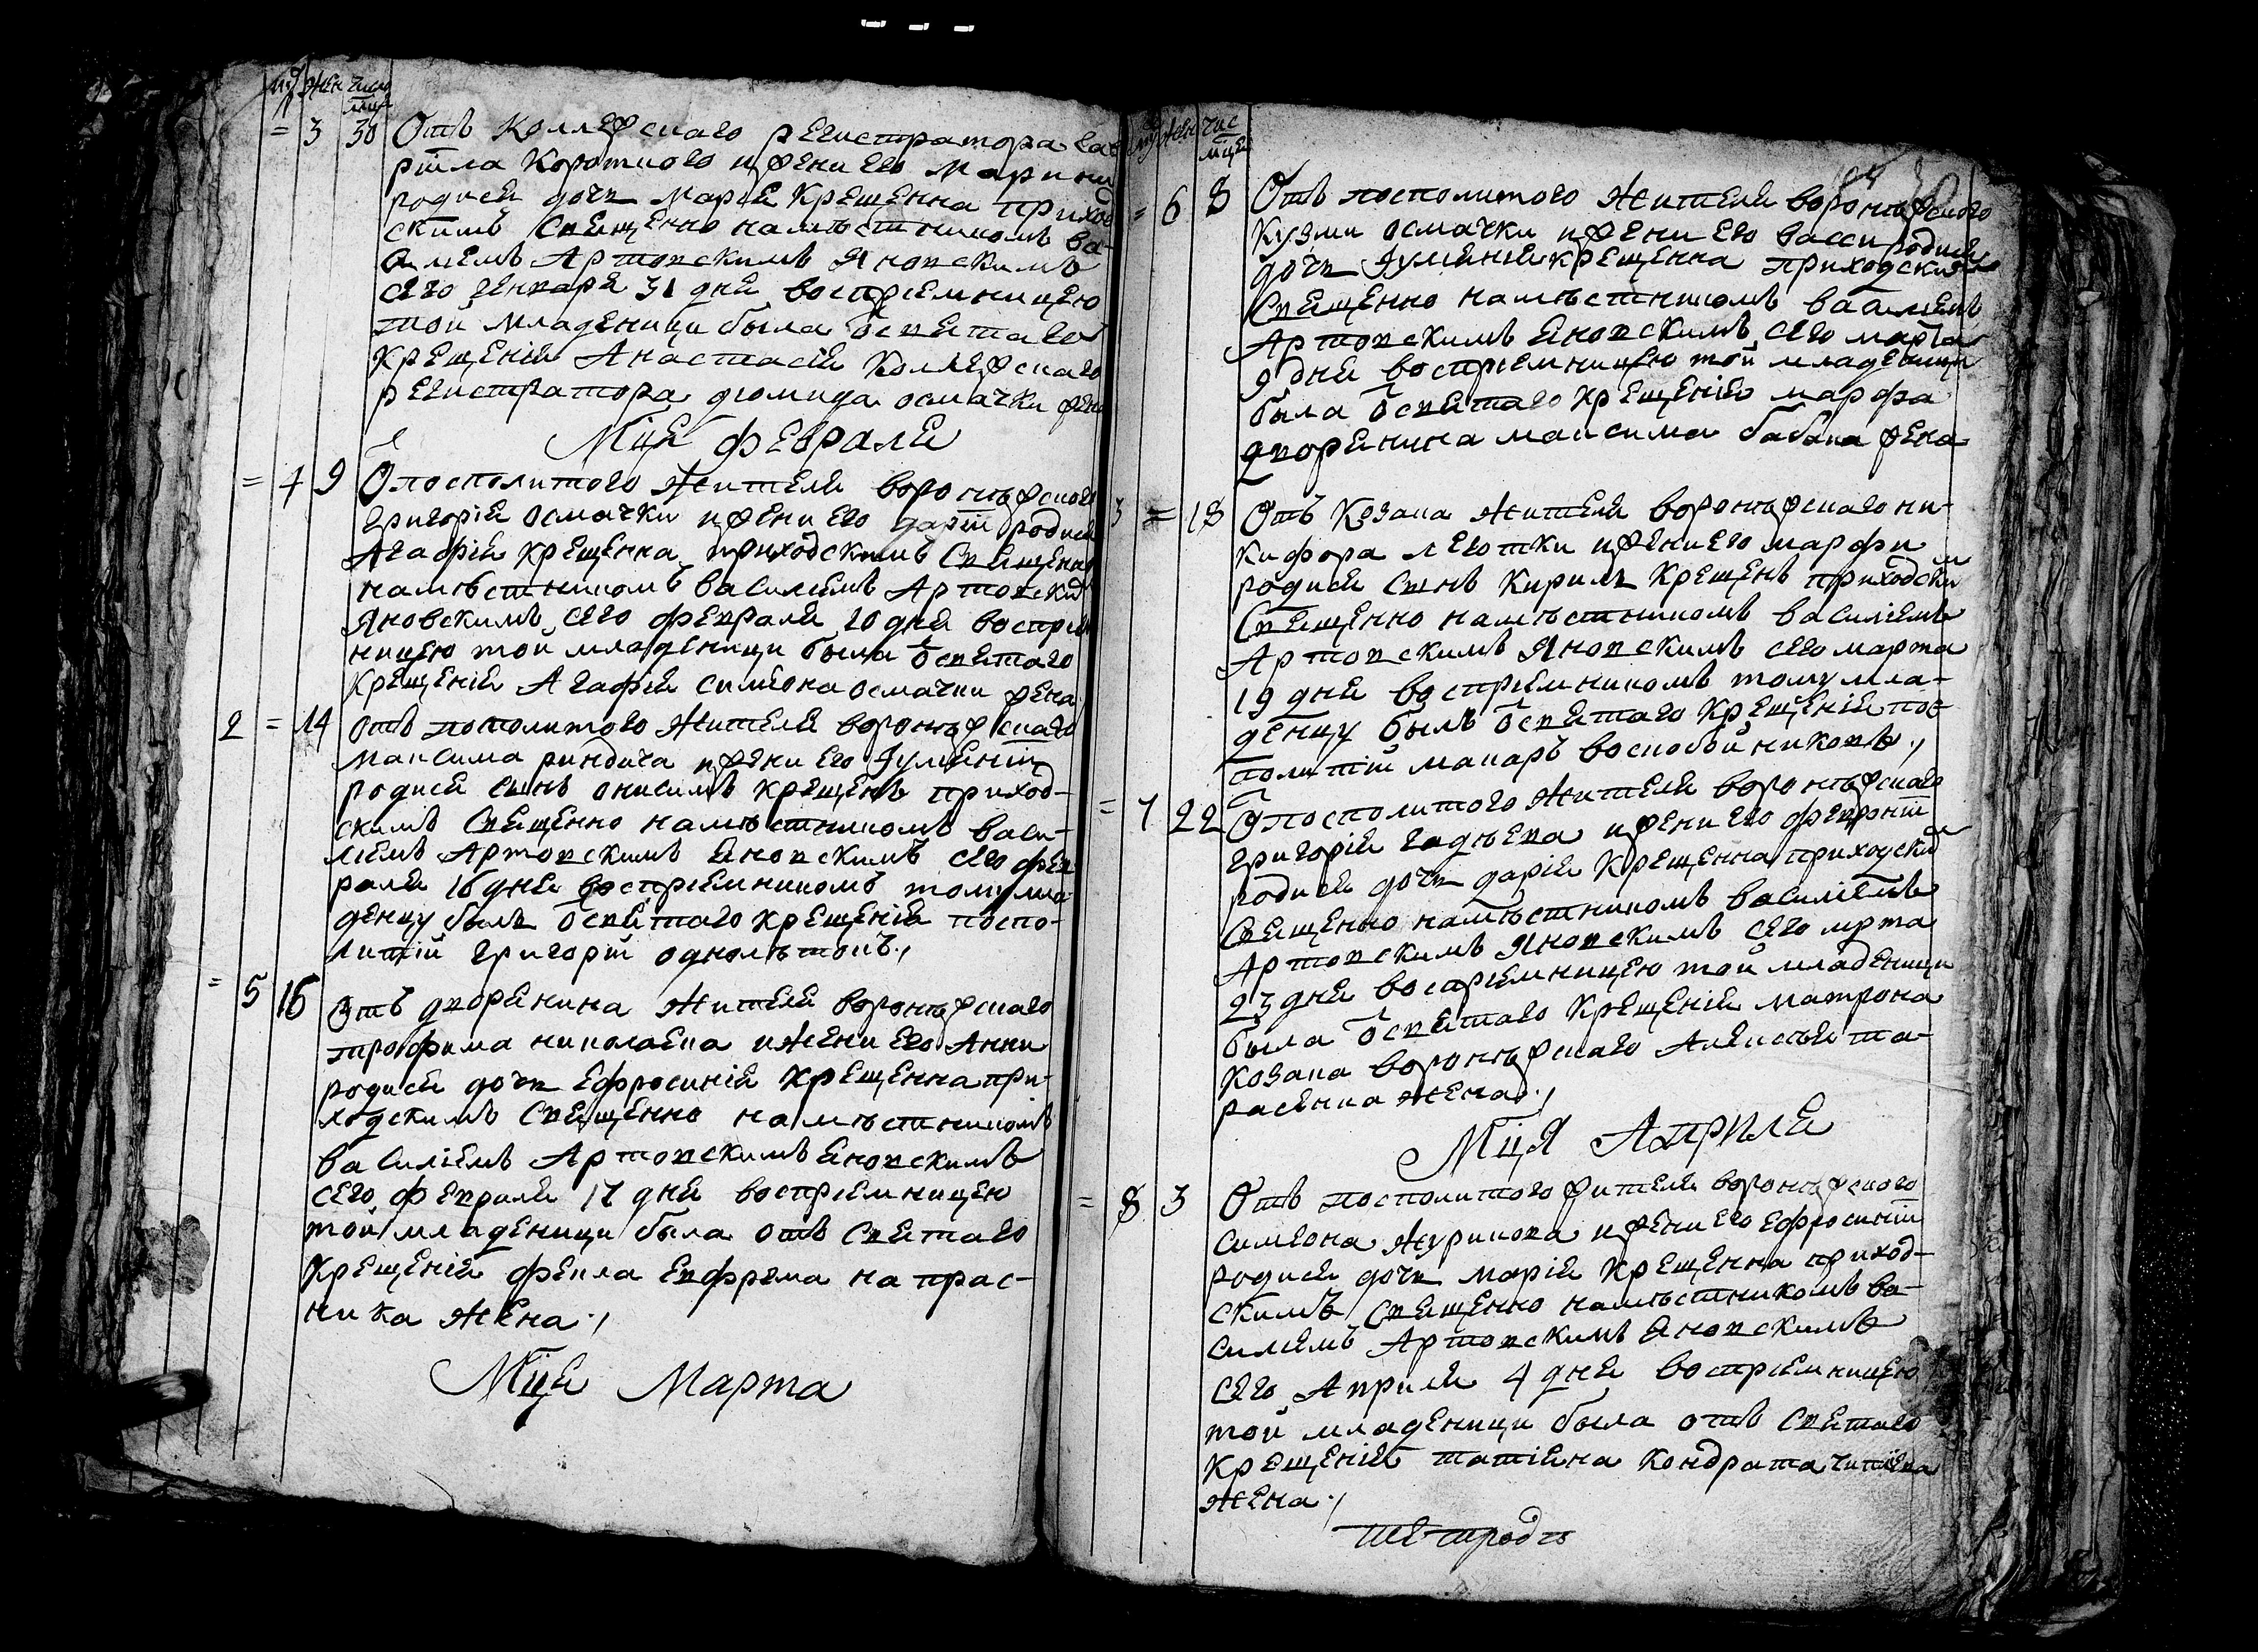 муж жен число мця
= 3 30 Отъ Коллежскаго регистратора Гав
рiила Короткого ижени его Марины
родися дочъ Марiя Крещенна приход
скимъ Священно намѣстникомъ Ва-
лiемъ Артовскимъ Яновскимъ
сего генваря 31 дня воспрiемницею
той младеници была ѿ святаго
Крещенiя Анастасiя Коллежскаго
регистратора дiомида осмачки жена
Мця февраля
= 4 9 Ѿ посполитого жителя воронѣжского
григорiя осмачки ижени его дарiи родися
Агафiя Крещенна приходскимъ Священно
намѣстникомъ василiемъ Артовским
Яновскимъ сего февраля 10 дня воспрiем
ницею той младеници была ѿ святаго
Крещенiя Агафiя симеона осмачки жена
2 = 14 Отъ посполитого жителя воронѣжскаго
максима риндича ижени его Iулiянiи
родися сынъ онисимъ крещенъ приход-
скимъ Священно намѣстникомъ васи-
лiемъ Артовскимъ Яновскимъ сего фев
раля 16 дня воспрiемникомъ тому мла
денцу былъ ѿ святаго крещенiя поспо-
литiй григорiй однолѣтокъ./
= 5 16 Отъ дворянина жителя воронѣжскаго
трофима николаева ижени его Анни
родися дочъ Ефросинiя Крещенна при-
ходскимъ Священно намѣстникомъ
василiемъ Артовскимъ Яновскимъ
сего февраля 17 дня воспрiемницею
той младеници была отъ Святаго
Крещенiя фекла Евфрема напрас-
ника жена./
Мця Марта
муж жен чис мця
= 6 8 Отъ посполитого жителя воронѣжского
Кузми осмачки ижени его васси родися
дочъ Iулiянiя крещенна приходским
Священно намѣстникомъ василiемъ
Артовскимъ Яновскимъ сего марта
9 дня воспрiемницею той младеници
была ѿ святаго крещенiя марфа
дворянина максима бабака жена
3 = 18 Отъ Козака жителя воронѣжскаго ни-
кифора леготки ижени его марфи
родися сынъ Кирилъ Крещенъ приходским
Священно намѣстникомъ василiемъ
Артовскимъ Яновскимъ сего марта
19 дня воспрiемникомъ тому мла-
денцу былъ ѿ святаго Крещенiя пос
политiй макаръ воскобойниковъ./
= 7 22 Ѿ посполитого жителя воронѣжскаго
григорiя гадѣева ижени его февронiи
родися дочъ дарiя Крещенна приходским
Священно намѣстникомъ василiемъ
Артовскимъ Яновскимъ сего мрта
23 дня воспрiемницею той младеници
была ѿ святаго Крещенiя матрона
козака воронѣжскаго Алексѣя та-
расенка жена./
Мця Априля
= 8 3 Отъ посполитого жителя воронѣжского
симеона журикова ижени его Ефросинiи
родися дочъ марiя Крещенна приход-
скимъ Священно намѣстникомъ ва-
силiемъ Артовскимъ Яновскимъ
сего Априля 4 дня воспрiемницею
той младеници была отъ Святаго
Крещенiя татiяна Кондрата
жена./
тетродъ